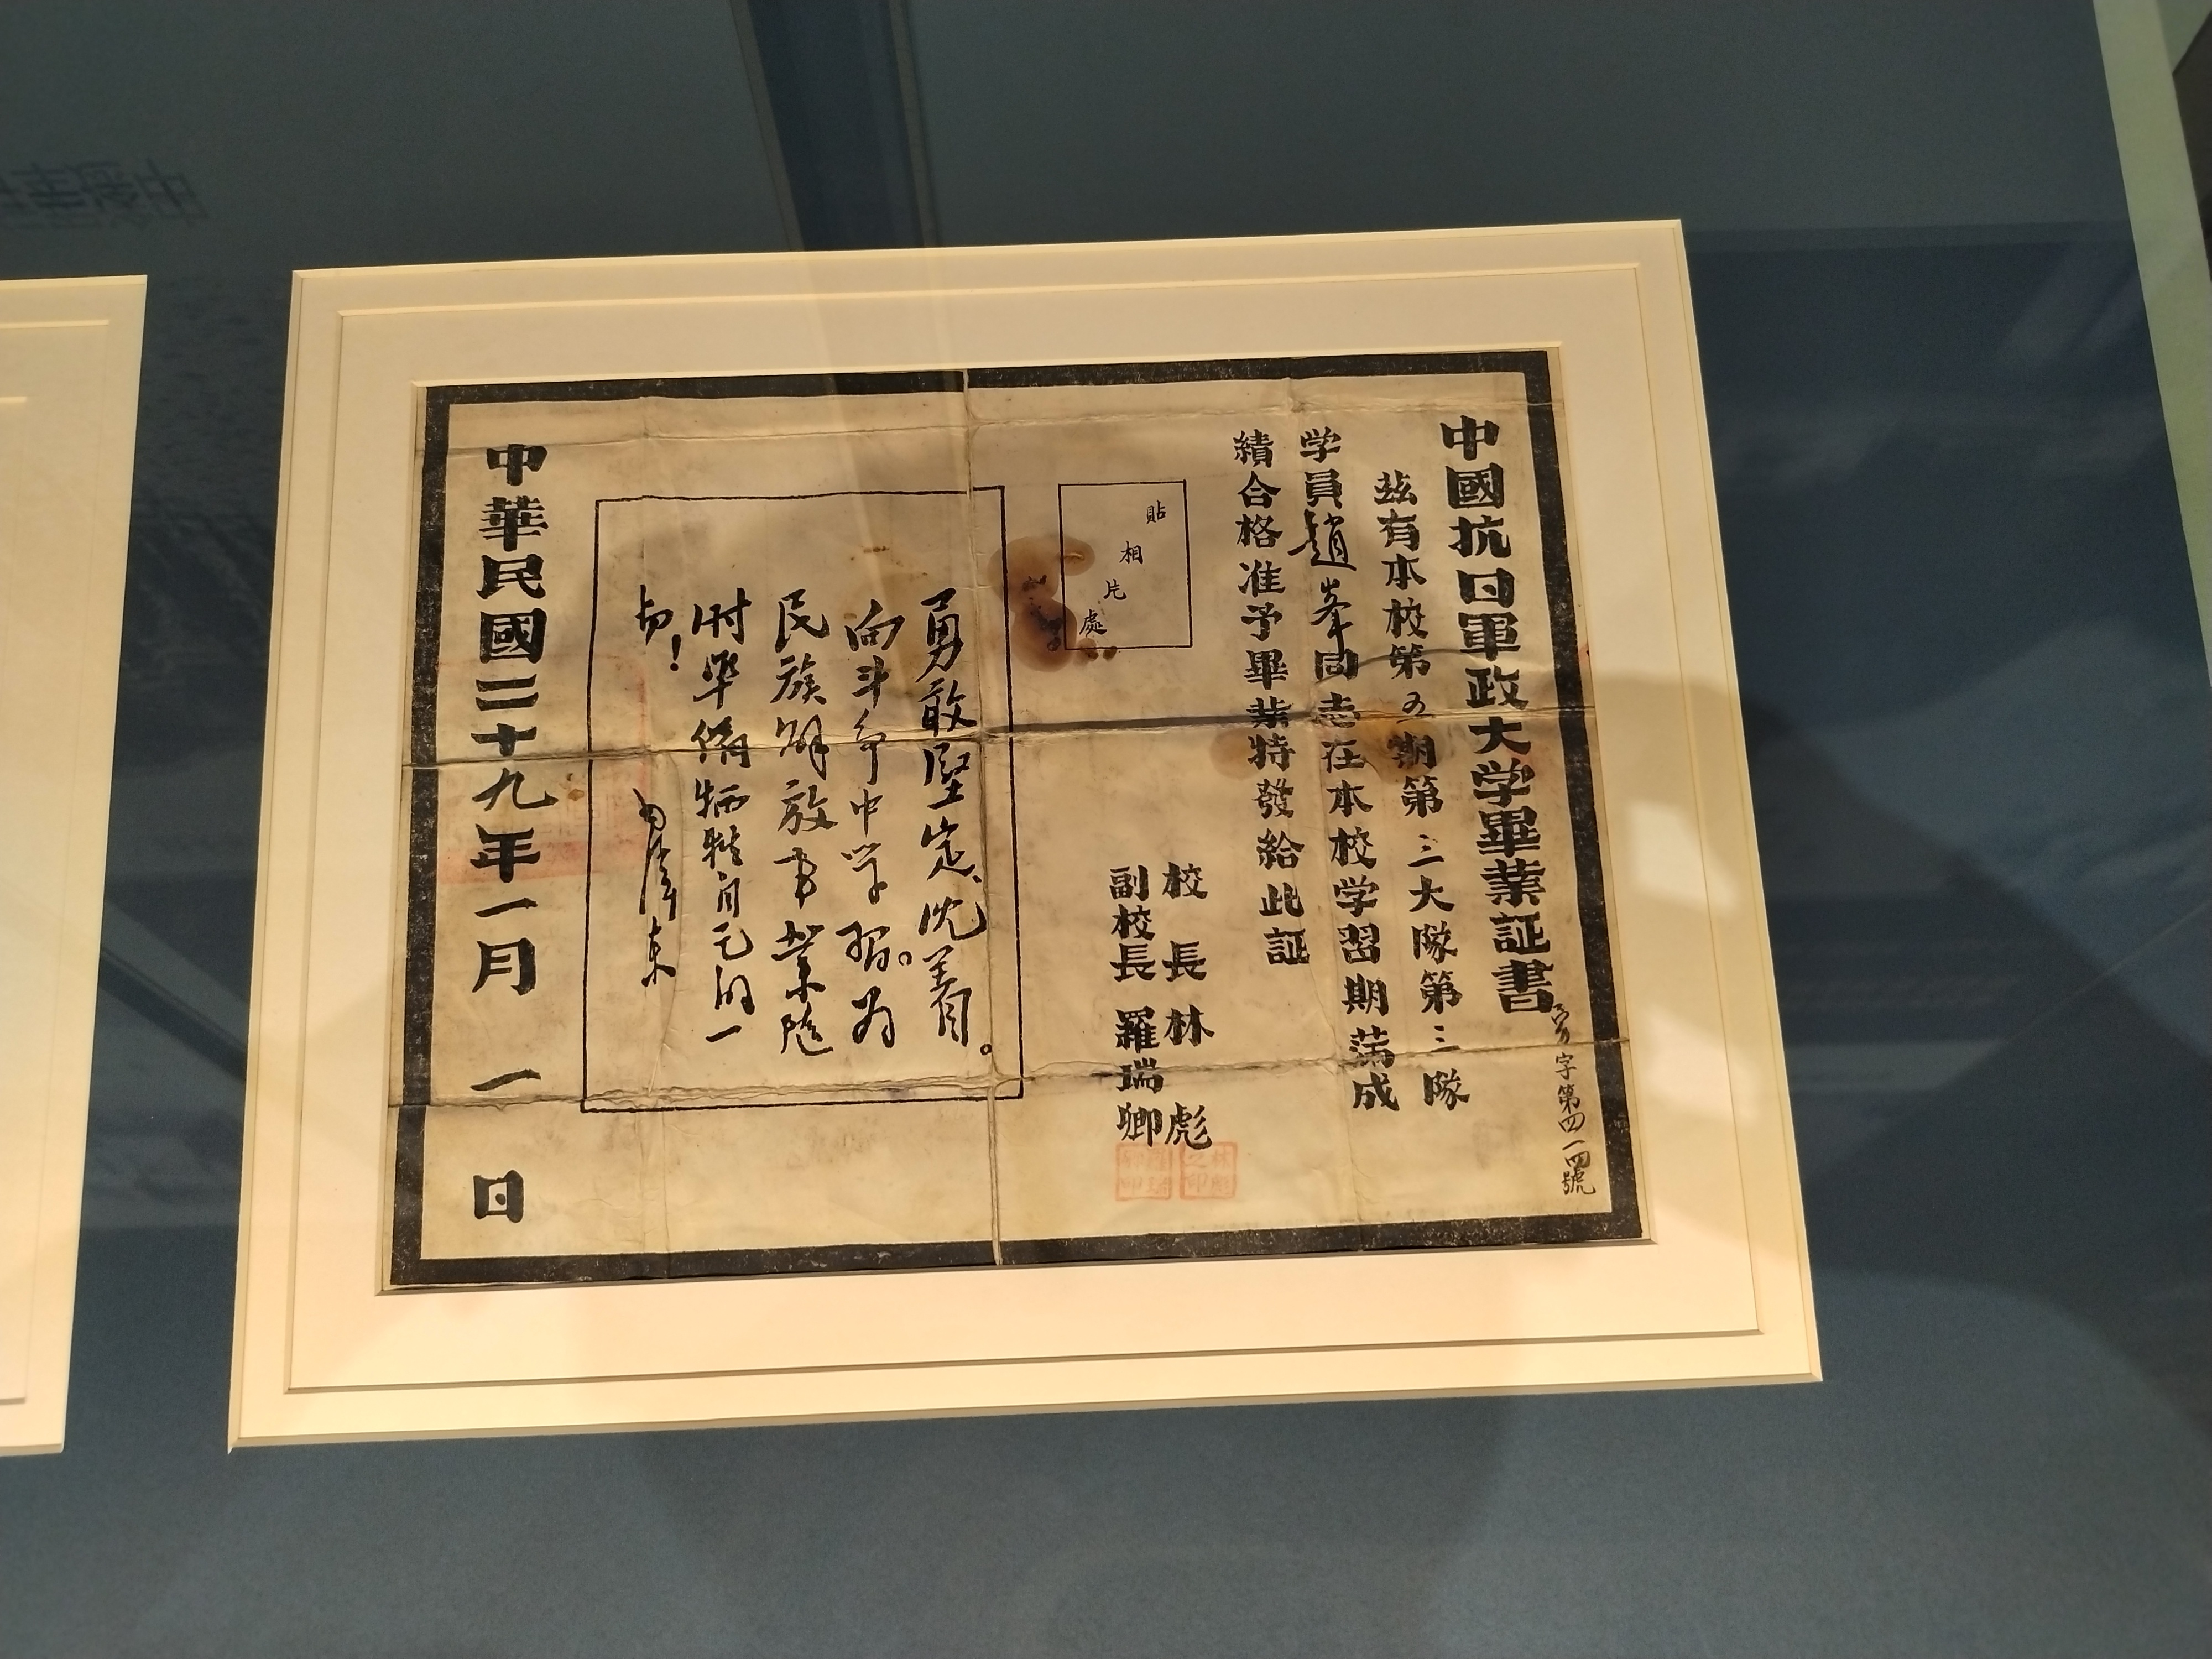 中國抗日軍政大学畢業証書
字第四一四號
茲有本校第五期第三大隊第三隊
学員趙峯同志在本校学習期满成
績合格准予畢業特發給此証
校長林彪
副校長羅瑞卿
林彪之印
貼相片處
勇敢、堅定、沈着。
向斗争中学習。為
民族解放事業隨
時準備犧牲自己的一
切！
毛澤東
中華民國二十九年一月一日